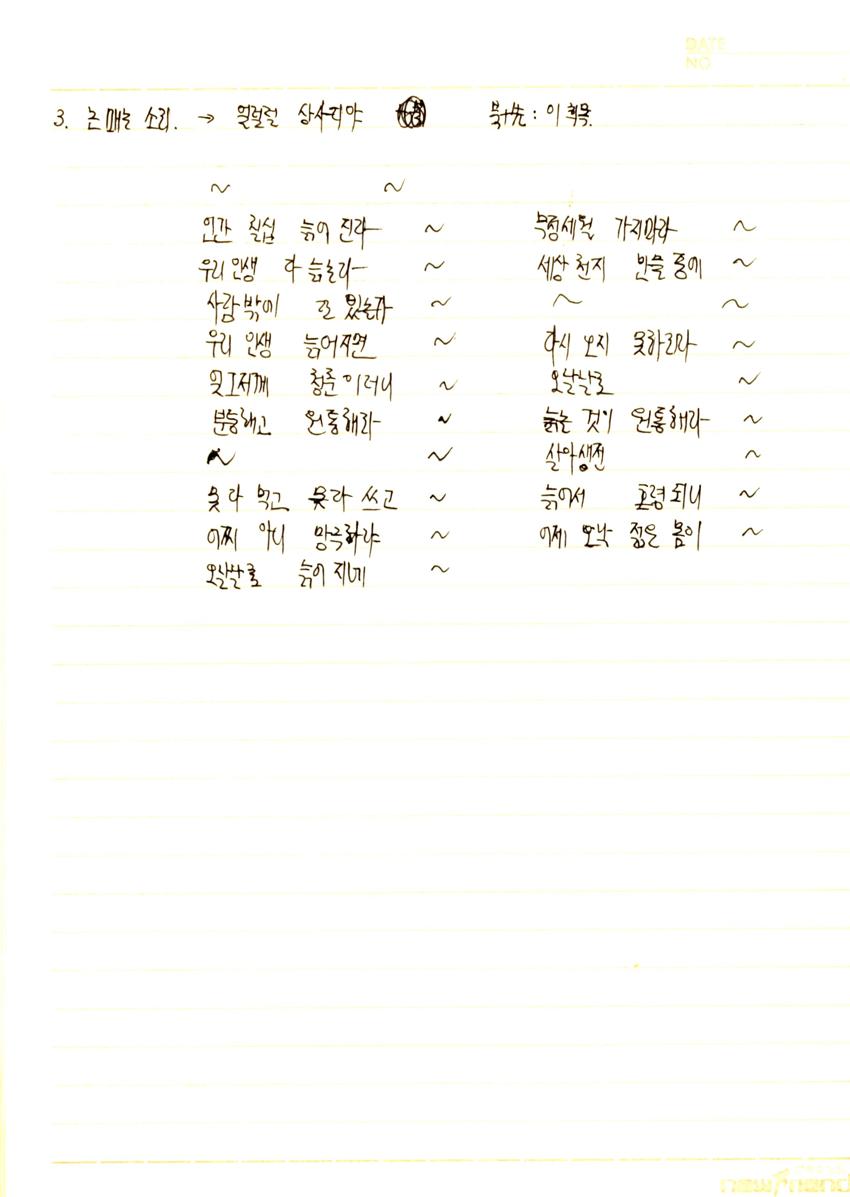 DATE
NO
3. 논매는 소리. → 얼럴럴 상사지야 북十先: 이
~ ~
인간 칠십 늙어 진라 ~ 무정세월 가지마라 ~
우리 인생 다 늙는라 ~ 세상 천지 만물 중에 ~
사람밖에 또 있는가 ~ ~ ~
우리 인생 늙어지면 ~ 다시 오지 못하리라 ~
엊그저께 청춘이러니 ~ 오날날로 ~
분통해고 원통해라 ~ 늙는 것이 원통해라 ~
~ ~ 살아생전 ~
못다 먹고 못다 쓰고 ~ 늙어서 호령되니 ~
어찌 아니 망극하랴 ~ 어제 오날 젊은 몸이 ~
오날날로 늙어 지네 ~
newfriend